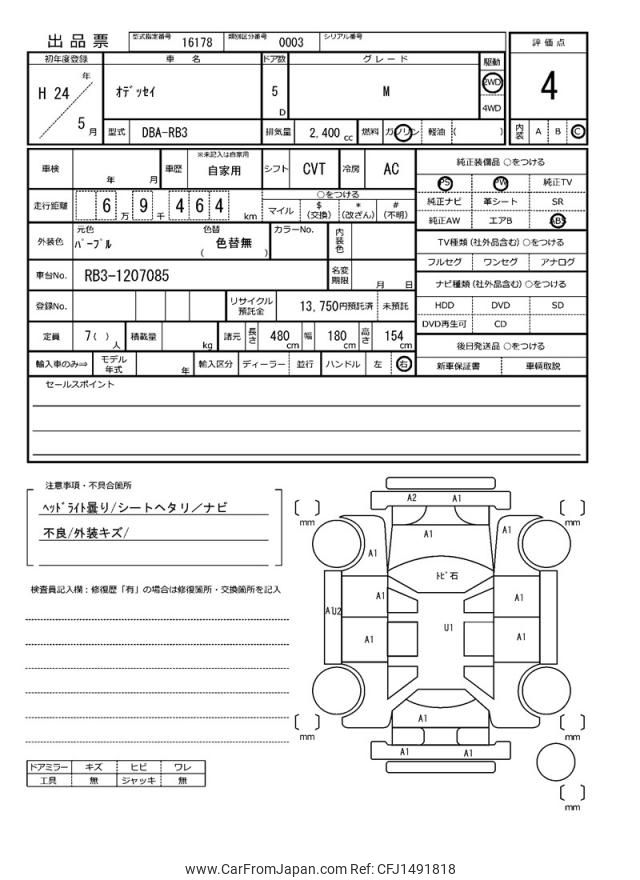 出品票 型式指定番号 16178 類別区分番号 0003 シリアル番号
評価点
初年度登録 車名 ドア数 グレード 駆動
H 24 年 5 月 ｵﾃﾞｯｾｲ 5 D M 2WD 4WD
4
型式 DBA-RB3 排気量 2,400 cc 燃料 ガソリン 軽油 ( )
内装 A B C
車検 年 月 車歴 ※未記入は自家用 自家用 シフト CVT 冷房 AC
純正装備品 ○をつける
PS PW 純正TV
純正ナビ 革シート SR
純正AW エアB ABS
走行距離 6 万 9 千 4 6 4 km
○をつける
マイル $ (交換) * (改ざん) # (不明)
外装色 元色 ﾊﾟｰﾌﾟﾙ 色替 色替無 ( ) カラーNo. 内装色
TV種類 (社外品含む) ○をつける
フルセグ ワンセグ アナログ
車台No. RB3-1207085 名変期限 月 日
ナビ種類 (社外品含む) ○をつける
HDD DVD SD
DVD再生可 CD
登録No. リサイクル預託金 13,750円預託済 未預託
定員 7 ( ) 人 積載量 kg 諸元 長さ 480 cm 幅 180 cm 高さ 154 cm
後日発送品 ○をつける
新車保証書 車輌取説
輸入車のみ⇒ モデル年式 年 輸入区分 ディーラー 並行 ハンドル 左 右
セールスポイント
注意事項・不具合箇所
ﾍｯﾄﾞﾗｲﾄ曇り/シートヘタリ/ナビ
不良/外装キズ/
検査員記入欄：修復歴「有」の場合は修復箇所・交換箇所を記入
A2 A1
mm mm
A1
A1 A1
ﾄﾋﾞ石
A1 A1
AU2
U1
A1 A1
A1
mm mm
A1 A1
mm
ドアミラー キズ ヒビ ワレ
工具 無 ジャッキ 無
www.CarFromJapan.com Ref: CFJ1491818